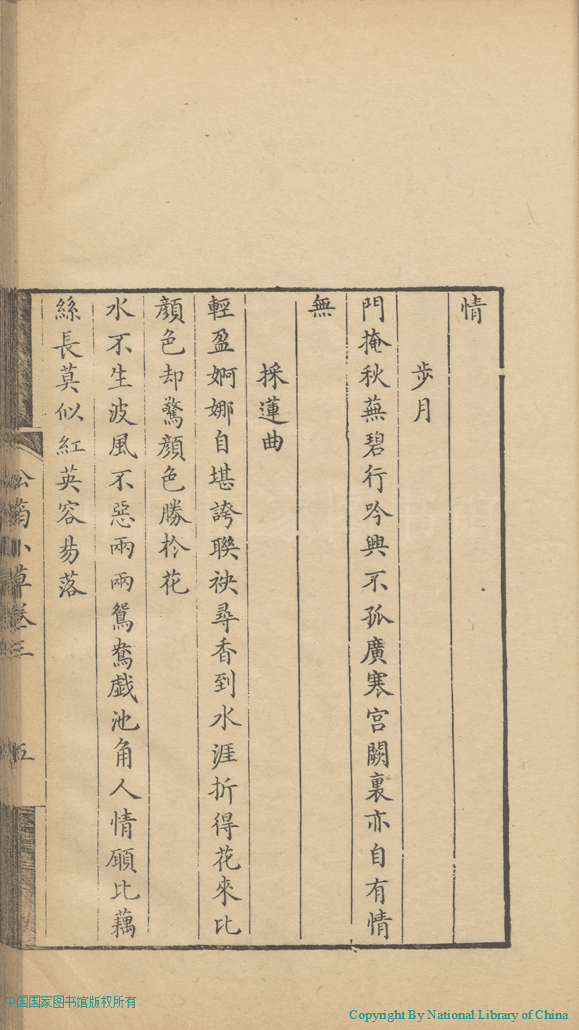 情
步月
門掩秋蕪碧行吟興不孤廣寒宫闕裏亦自有情
無
採蓮曲
輕盈婀娜自堪誇聯袂尋香到水涯折得花來比
顔色却驚顔色勝於花
水不生波風不惡兩兩鴛鴦戯池角人情願比藕
絲長莫似紅英容易落
小草卷三
五
中国国家图书馆版权所有
Copyright By National Library of China